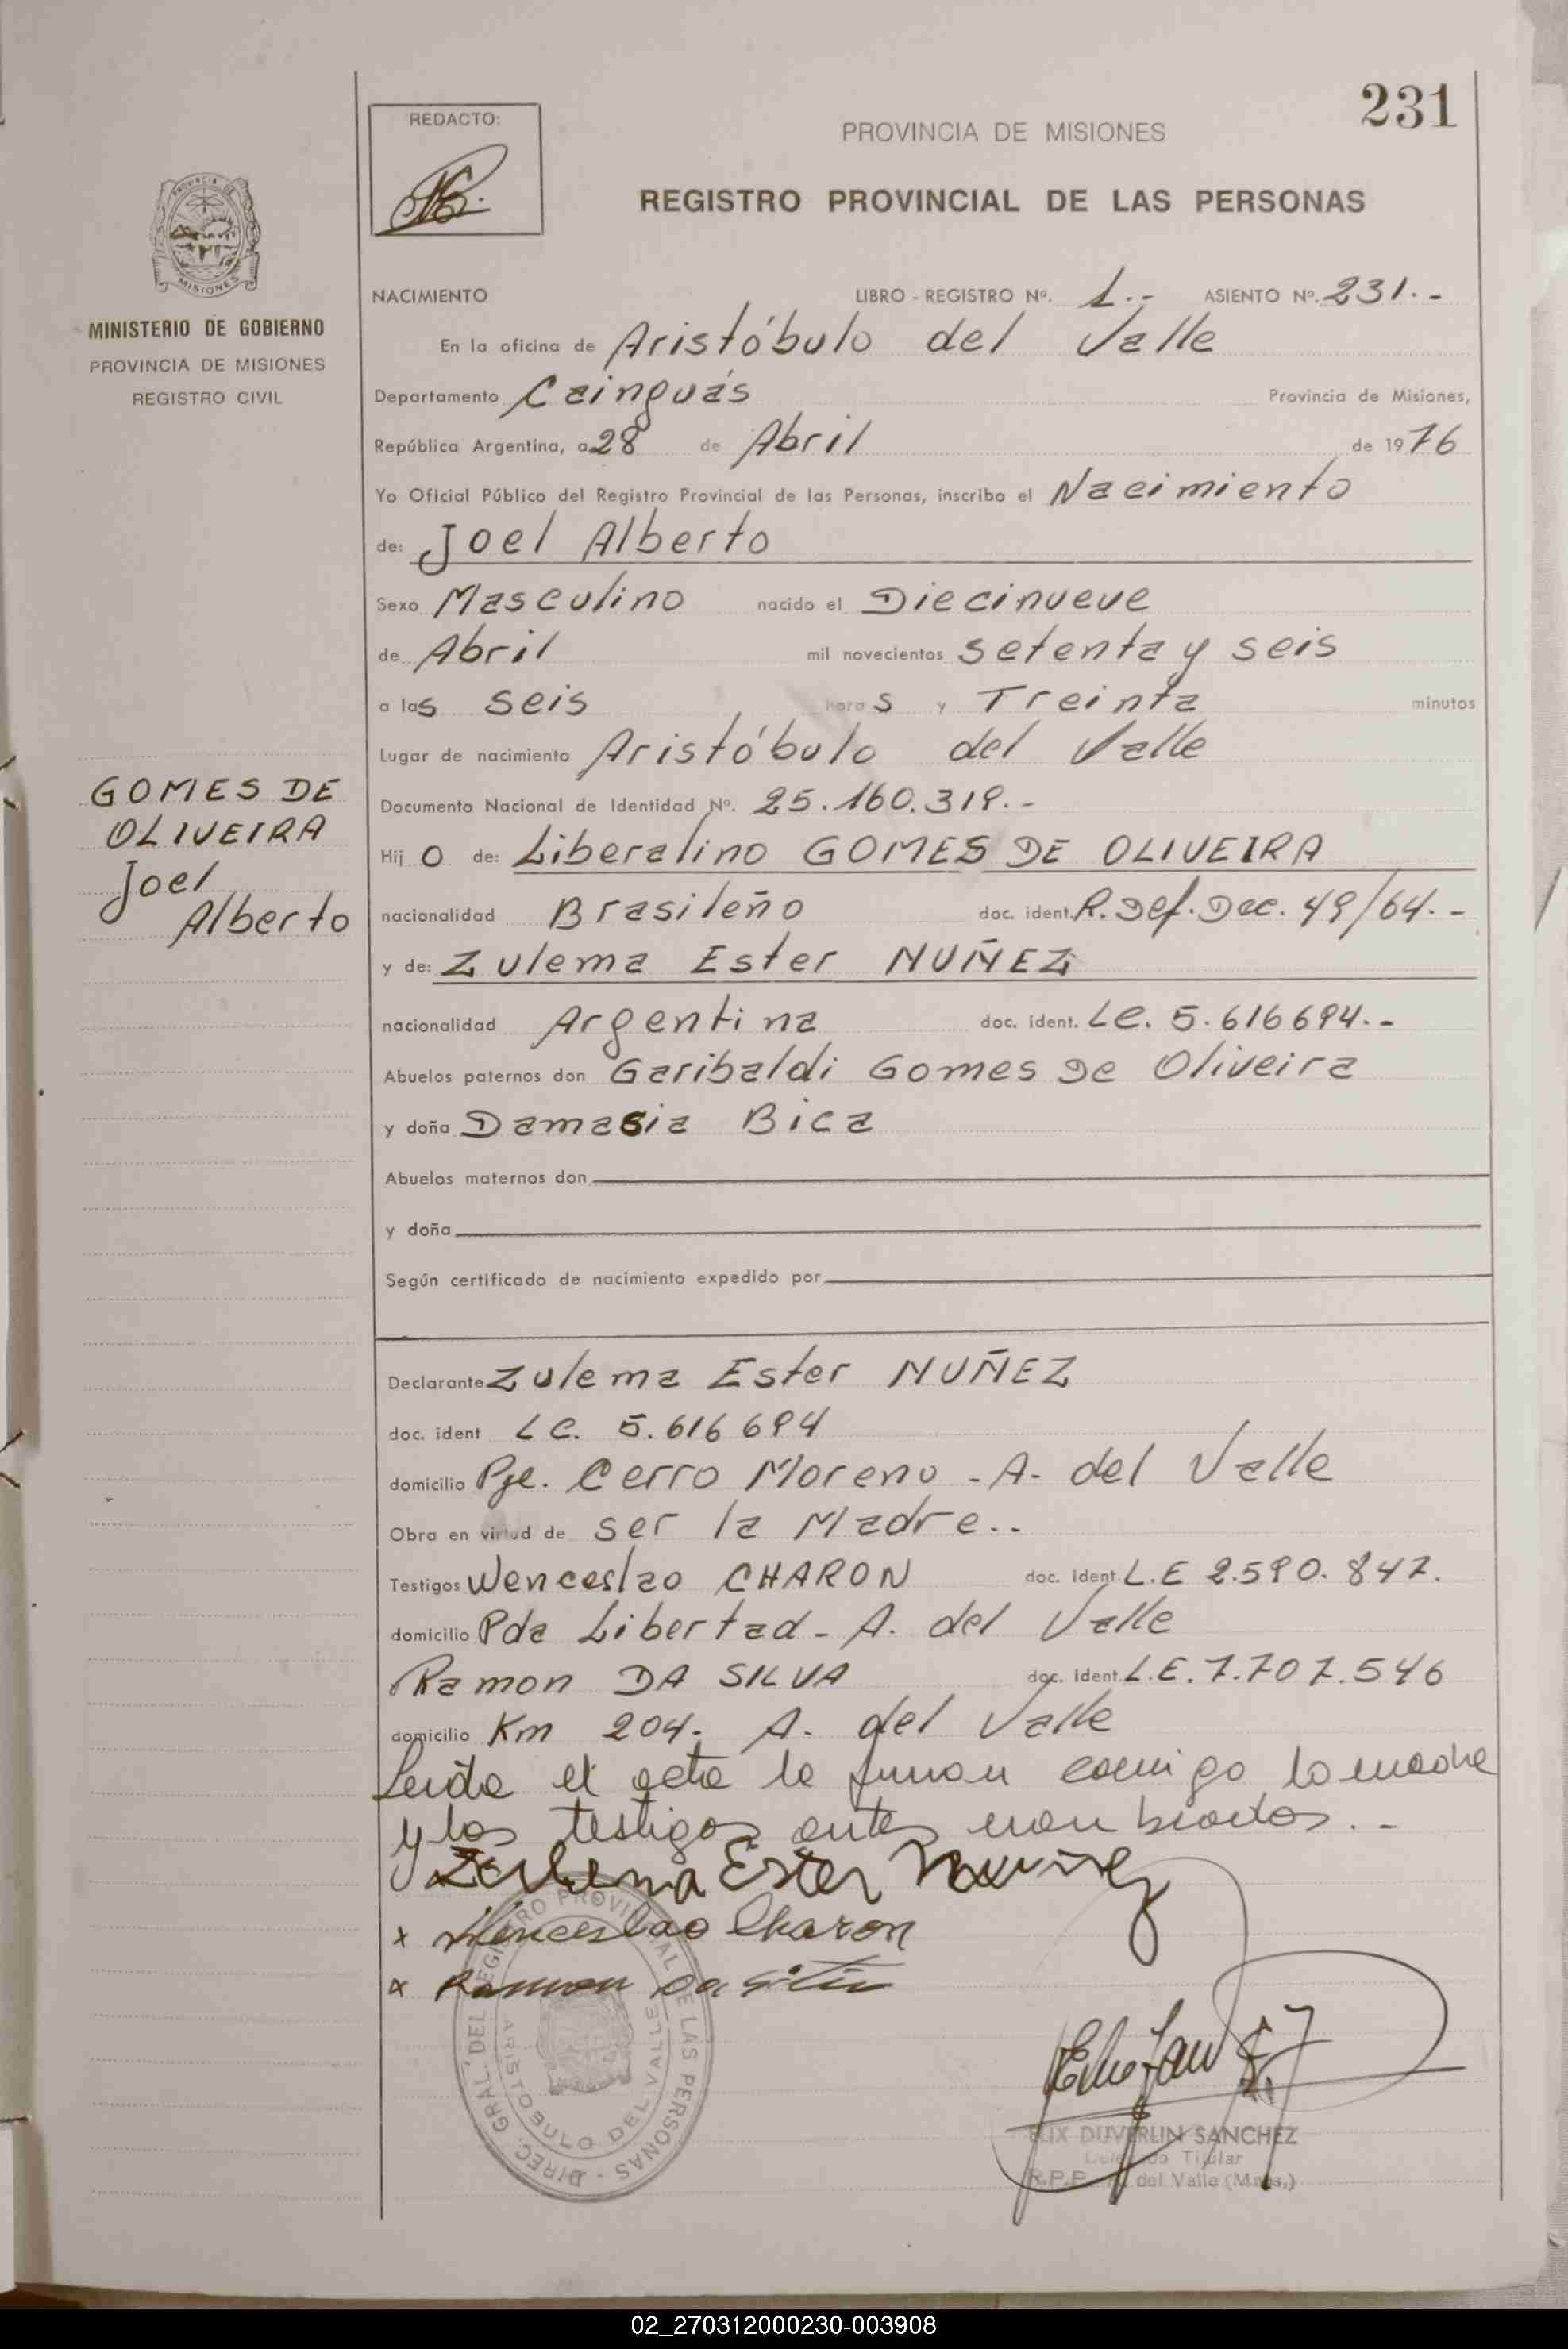 231
REDACTO:
PROVINCIA DE MISIONES
REGISTRO PROVINCIAL DE LAS PERSONAS
PROVINCIA DE
MISIONES
MINISTERIO DE GOBIERNO
PROVINCIA DE MISIONES
REGISTRO CIVIL
NACIMIENTO LIBRO - REGISTRO Nº. 1.- ASIENTO Nº. 231.-
En la oficina de Aristóbulo del Valle
Departamento Cainguás Provincia de Misiones,
República Argentina, a 28 de Abril de 1976
Yo Oficial Público del Registro Provincial de las Personas, inscribo el Nacimiento
de: Joel Alberto
Sexo Masculino nacido el Diecinueve
de Abril mil novecientos setenta y seis
a las seis horas y Treinta minutos
Lugar de nacimiento Aristóbulo del Valle
Documento Nacional de Identidad Nº. 25.160.319.-
GOMES DE
OLIVEIRA
Joel
Alberto
Hijo de: Liberalino GOMES DE OLIVEIRA
nacionalidad Brasileño doc. ident. R. Def. Dec. 49/64.-
y de: Zulema Ester NUÑEZ
nacionalidad Argentina doc. ident. LC. 5.616694.-
Abuelos paternos don Garibaldi Gomes De Oliveira
y doña Damasia Bica
Abuelos maternos don
y doña
Según certificado de nacimiento expedido por
Declarante Zulema Ester NUÑEZ
doc. ident LC. 5.616694
domicilio Pje. Cerro Moreno - A. del Valle
Obra en virtud de ser la Madre..
Testigos Wenceslao CHARON doc. ident. L.E 2.590.847.
domicilio Pda Libertad - A. del Valle
Ramon DA SILVA doc. ident. L.E. 7.707.546
domicilio Km 204. A. del Valle
Leida el acta la firman conmigo la madre
y los testigos antes nombrados.-
Zulema Ester Nuñez
x Wenceslao Charon
x Ramon Da Silva
DIREC. GRAL. DEL REGISTRO PROVINCIAL DE LAS PERSONAS -
ARISTOBULO DEL VALLE
DUVERLIN SANCHEZ
Titular
R.P.P. del Valle (Mnes.)
02_270312000230-003908